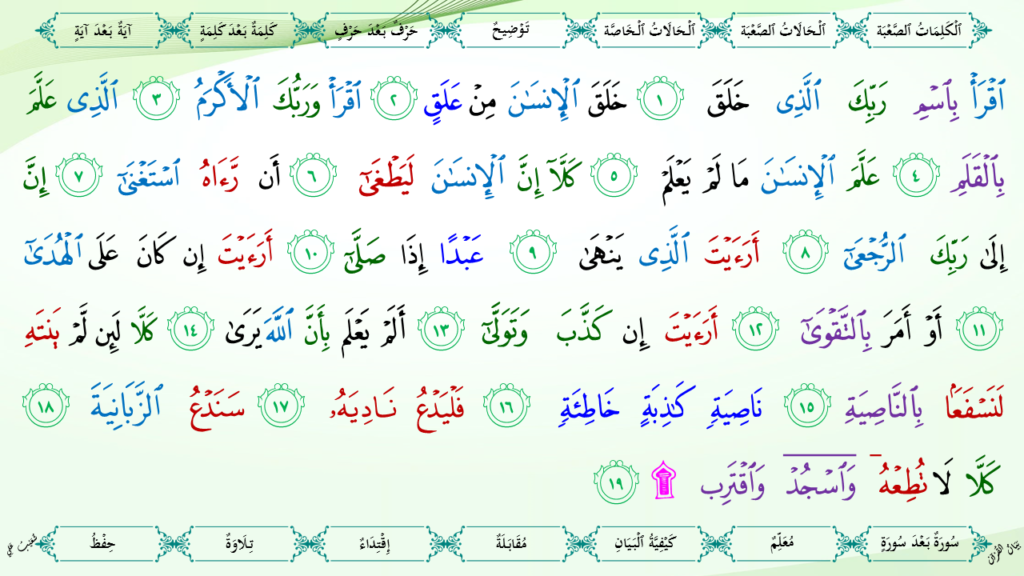 اَلْكَلِمَاتُ الصَّعْبَةُ اَلْحَالَاتُ الصَّعْبَةُ اَلْحَالَاتُ الْخَاصَّةُ تَوْضِيحٌ حَرْفٌ بَعْدَ حَرْفٍ كَلِمَةٌ بَعْدَ كَلِمَةٍ آيَةٌ بَعْدَ آيَةٍ
ٱقۡرَأۡ بِٱسۡمِ رَبِّكَ ٱلَّذِى خَلَقَ ١ خَلَقَ ٱلۡإِنسَـٰنَ مِنۡ عَلَقٍ ٢ ٱقۡرَأۡ وَرَبُّكَ ٱلۡأَكۡرَمُ ٣ ٱلَّذِى عَلَّمَ
بِٱلۡقَلَمِ ٤ عَلَّمَ ٱلۡإِنسَـٰنَ مَا لَمۡ يَعۡلَمۡ ٥ كَلَّآ إِنَّ ٱلۡإِنسَـٰنَ لَيَطۡغَىٰٓ ٦ أَن رَّءَاهُ ٱسۡتَغۡنَىٰٓ ٧ إِنَّ
إِلَىٰ رَبِّكَ ٱلرُّجۡعَىٰٓ ٨ أَرَءَيۡتَ ٱلَّذِى يَنۡهَىٰ ٩ عَبۡدًا إِذَا صَلَّىٰٓ ١٠ أَرَءَيۡتَ إِن كَانَ عَلَى ٱلۡهُدَىٰٓ
١١ أَوۡ أَمَرَ بِٱلتَّقۡوَىٰٓ ١٢ أَرَءَيۡتَ إِن كَذَّبَ وَتَوَلَّىٰٓ ١٣ أَلَمۡ يَعۡلَم بِأَنَّ ٱللَّهَ يَرَىٰ ١٤ كَلَّا لَئِن لَّمۡ يَنتَهِ
لَنَسۡفَعَۢا بِٱلنَّاصِيَةِ ١٥ نَاصِيَةٍ كَـٰذِبَةٍ خَاطِئَةٍ ١٦ فَلۡيَدۡعُ نَادِيَهُۥ ١٧ سَنَدۡعُ ٱلزَّبَانِيَةَ ١٨
كَلَّا لَا تُطِعۡهُ وَٱسۡجُدۡ وَٱقۡتَرِب ۩ ١٩
سُورَةٌ بَعْدَ سُورَةٍ مُعَلِّمٌ كَيْفِيَّةُ الْبَيَانِ مُقَابَلَةٌ إِقْتِدَاءٌ تِلَاوَةٌ حِفْظٌ